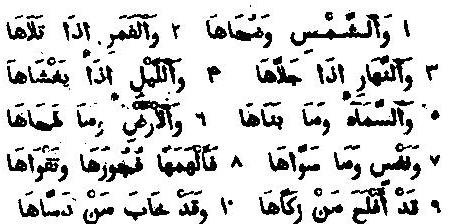 ١ وَٱلشَّمْسِ وَضُحَاهَا ٢ وَٱلْقَمَرِ إِذَا تَلَاهَا
٣ وَٱلنَّهَارِ إِذَا جَلَّاهَا ۴ وَٱللَّيْلِ إِذَا يَغْشَاهَا
٥ وَٱلسَّمَآءِ وَمَا بَنَاهَا ٦ وَٱلْأَرْضِ وَمَا طَحَاهَا
٧ وَنَفْسٍ وَمَا سَوَّاهَا ٨ فَأَلْهَمَهَا فُجُورَهَا وَتَقْوَاهَا
٩ قَدْ أَفْلَحَ مَنْ زَكَّاهَا ١٠ وَقَدْ خَابَ مَنْ دَسَّاهَا